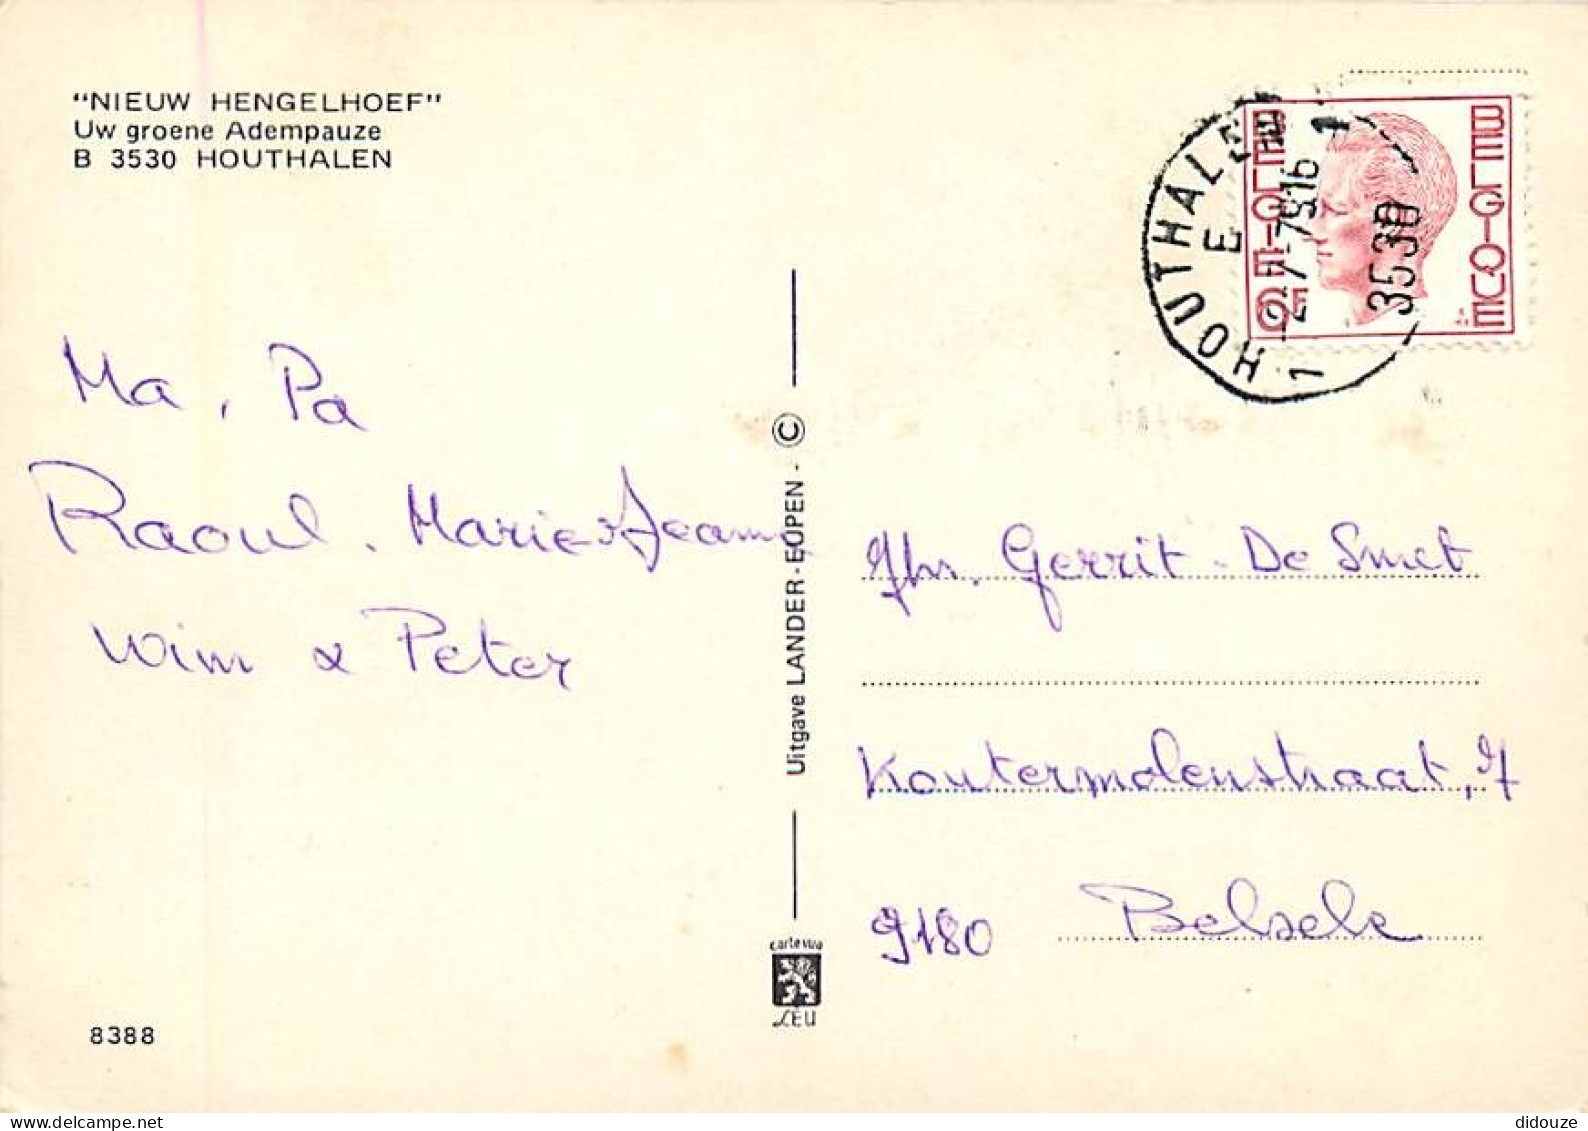 "NIEUW HENGELHOEF"
Uw groene Adempauze
B 3530 HOUTHALEN
Ma, Pa
Raoul. Marie-Jeanne
Wim & Peter
8388
Uitgave LANDER-EUPEN - ©
carte vue
LEU
HOUTHALEN 1
E
-2-7-79 16
3530
1
BELGIE 6F
BELGIQUE
Gerrit - De Smet
Koutermolenstraat, 7
9180 Belsele
delcampe.net
didouze